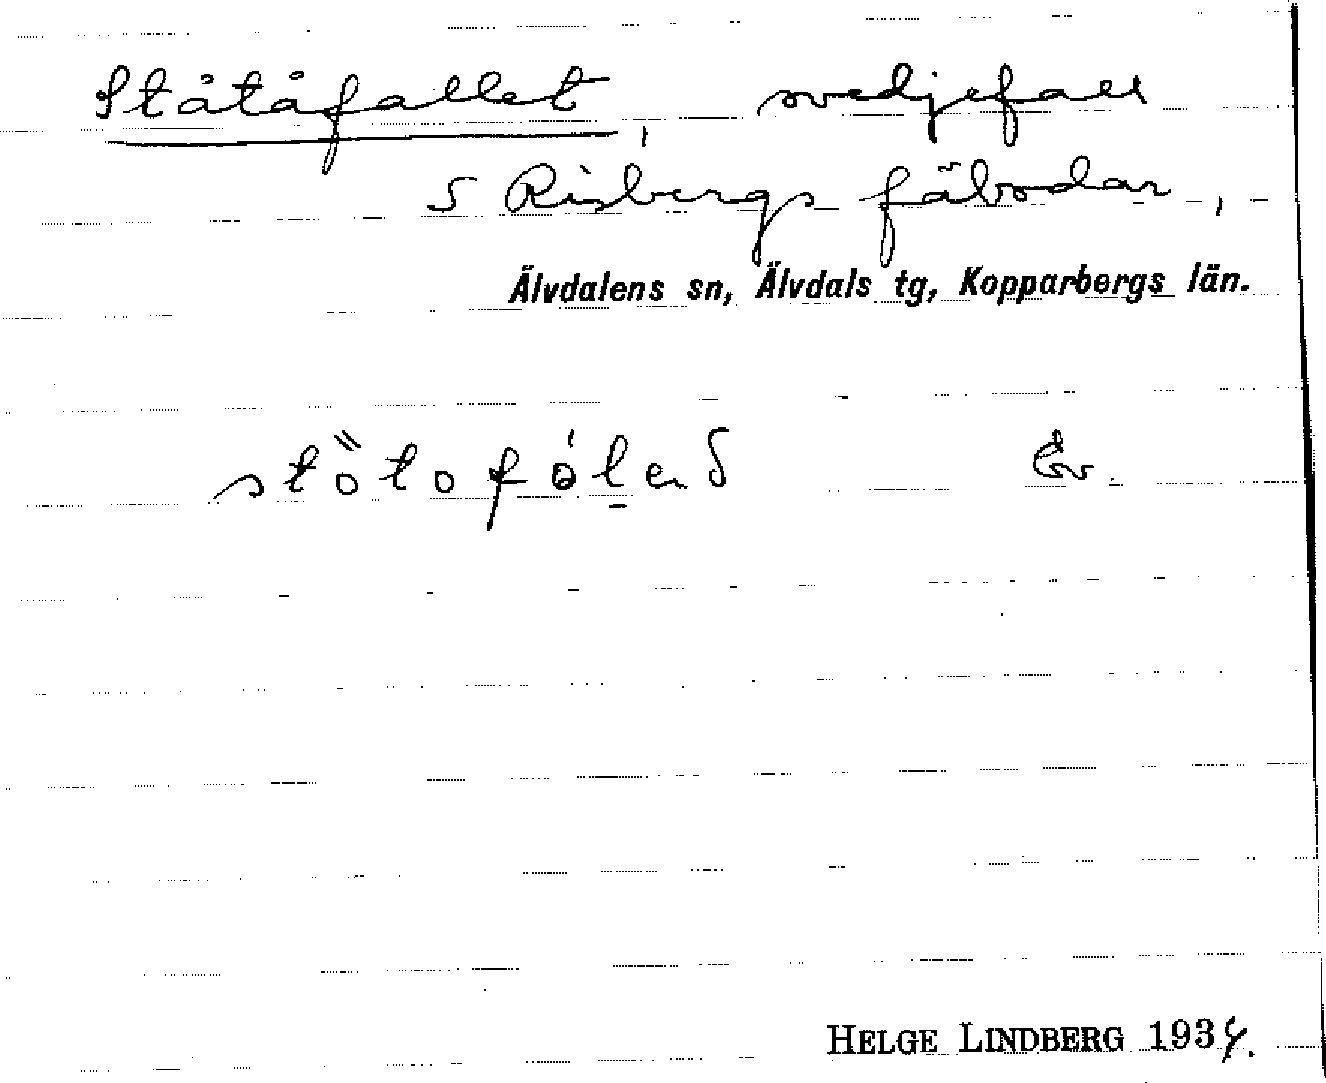 Ståtåfallet, svedjefall
S Risbergs fäbodar,
Älvdalens sn, Älvdals tg, Kopparbergs län.
Äv.
HELGE LINDBERG 1934.